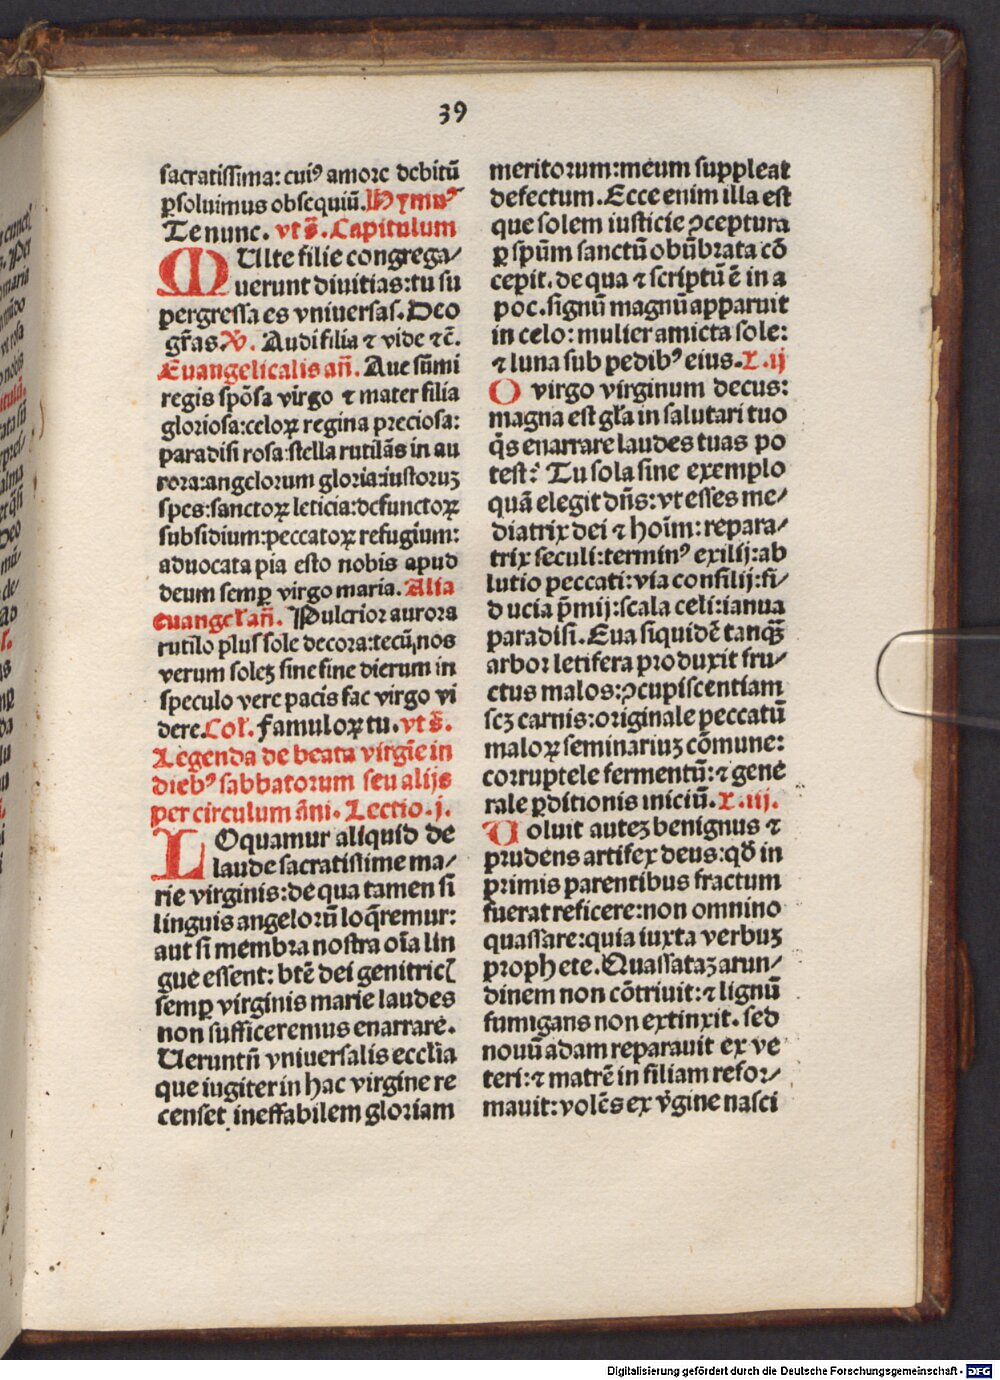 39
sacratissima: cuiꝰ amore debitū
ꝑsoluimus obsequiū. Hymnꝰ
Te nunc. vt s̄. Capitulum
MUlte filie congrega/
uerunt diuitias: tu su
pergressa es vniuersas. Deo
gr̄as. V. Audi filia ⁊ vide ⁊c̄.
Euangelicalis an̄. Aue sūmi
regis spōsa virgo ⁊ mater filia
gloriosa: celoꝝ regina preciosa:
paradisi rosa: stella rutilās in au
rora: angelorum gloria: iustoruꝫ
spes: sanctoꝝ leticia: defunctoꝝ
subsidium: peccatoꝝ refugium:
aduocata pia esto nobis apud
deum semꝑ virgo maria. Alia
euangel̄ an̄. Pulcrior aurora
rutilo plus sole decora: tecū nos
verum soleꝫ sine fine dierum in
speculo vere pacis fac virgo vi
dere. Col̄. Famuloꝝ tu. vt s̄.
Legenda de beata virgīe in
diebꝰ sabbatorum seu alijs
per circulum āni. Lectio .j.
LOquamur aliquid de
laude sacratissime ma/
rie virginis: de qua tamen si
linguis angelorū loq̄remur:
aut si membra nostra oīa lin
gue essent: btē dei genitrici
semꝑ virginis marie laudes
non sufficeremus enarrare.
Ueruntn̄ vniuersalis eccl̄ia
que iugiter in hac virgine re
censet ineffabilem gloriam
meritorum: meum suppleat
defectum. Ecce enim illa est
que solem iusticie ꝯceptura
ꝑ spūm sanctū obūbrata cō
cepit. de qua ⁊ scriptū ē in a
poc. signū magnū apparuit
in celo: mulier amicta sole:
⁊ luna sub pedibꝰ eius. L. ij
O virgo virginum decus:
magna est gl̄a in salutari tuo
q̄s enarrare laudes tuas po
test? Tu sola sine exemplo
quā elegit dn̄s: vt esses me/
diatrix dei ⁊ hoīm: repara/
trix seculi: terminꝰ exilij: ab
lutio peccati: via consilij: fi/
ducia p̄mij: scala celi: ianua
paradisi. Eua siquidē tanqꝫ
arbor letifera produxit fru/
ctus malos: ꝯcupiscentiam
scꝫ carnis: originale peccatū
maloꝝ seminariuꝫ cōmune:
corruptele fermentū: ⁊ gene
rale ꝑditionis iniciū. L. iij.
Uoluit auteꝫ benignus ⁊
prudens artifex deus: qd̄ in
primis parentibus fractum
fuerat reficere: non omnino
quassare: quia iuxta verbuꝫ
prophete. Quassataꝫ arun/
dinem non cōtriuit: ⁊ lignū
fumigans non extinxit. sed
nouū adam reparauit ex ve
teri: ⁊ matrē in filiam refor/
mauit: volēs ex v̄gine nasci
Digitalisierung gefördert durch die Deutsche Forschungsgemeinschaft - DFG